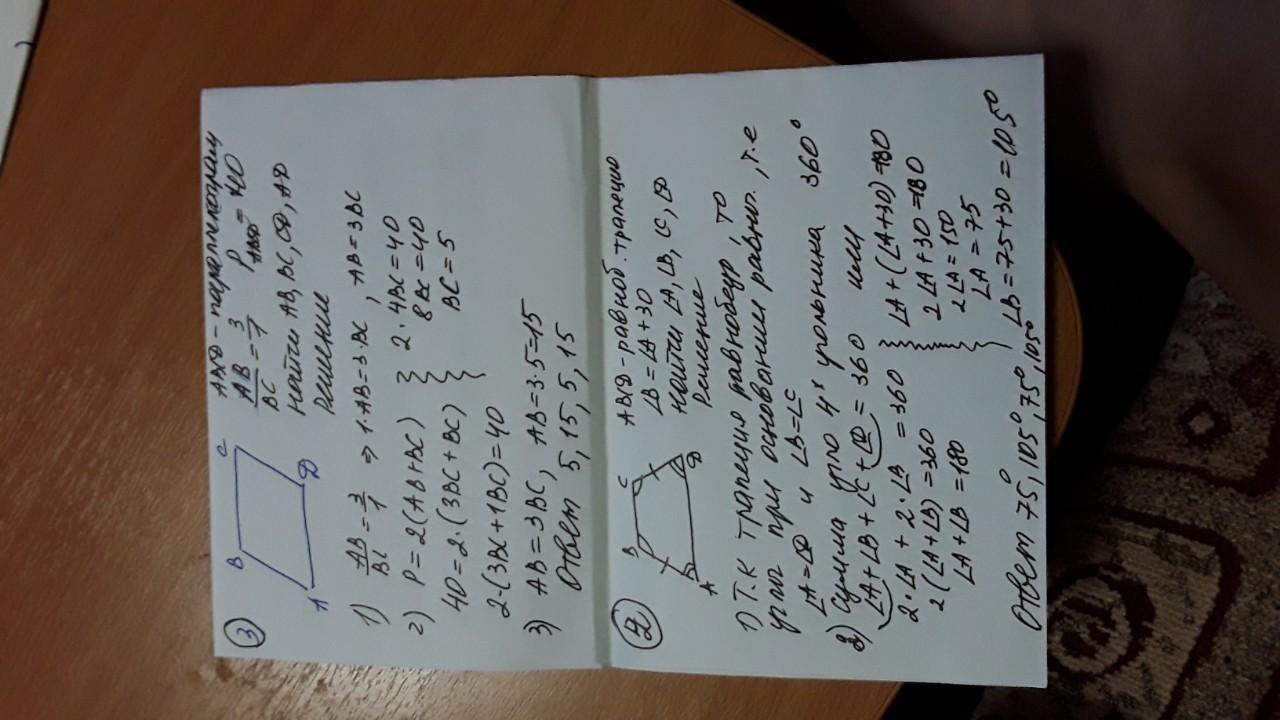 ③
B C
A D
ABCD - параллелограм
AB/BC = 3/1 P ABCD = 40
Найти AB, BC, CD, AD
Решение
1) AB/BC = 3/1 ⇒ 1·AB = 3·BC, AB = 3BC
2) P = 2(AB+BC)
40 = 2·(3BC+BC)
2·(3BC+1BC) = 40
2·4BC = 40
8BC = 40
BC = 5
3) AB = 3BC, AB = 3·5 = 15
Ответ 5, 15, 5, 15
②
B C
A D
ABCD - равноб. трапеция
∠B = ∠A + 30
Найти ∠A, ∠B, ∠C, ∠D
Решение
1) Т.К трапеция равнобедр, то
углы при основании равны., т.е
∠A = ∠D и ∠B = ∠C
2) Сумма угло 4х угольника 360°
∠A + ∠B + ∠C + ∠D = 360 или
2·∠A + 2·∠B = 360
2(∠A + ∠B) = 360
∠A + ∠B = 180
∠A + (∠A + 30) = 180
2∠A + 30 = 180
2∠A = 150
∠A = 75
∠B = 75 + 30 = 105°
Ответ 75°, 105°, 75°, 105°